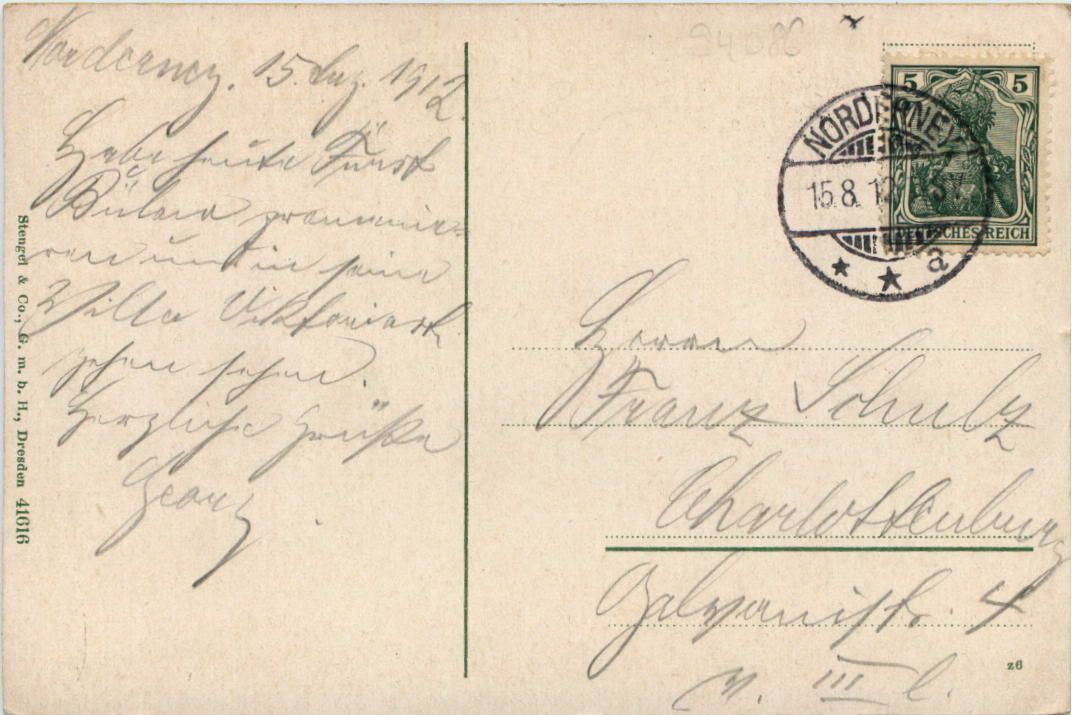 Norderney. 15. Aug. 1912.
Habe heute Fürst
Bülow promenie-
ren und in seine
Villa Viktoriast.
gehen sehen.
Herzliche Grüße
Georg
Stengel & Co., G. m. b. H., Dresden 41616
94086
5 5
DEUTSCHES REICH
NORDERNEY
15.8.12
a
Herrn
Franz Schulz
Charlottenburg
Galvanistr. 4
v. III l.
z6